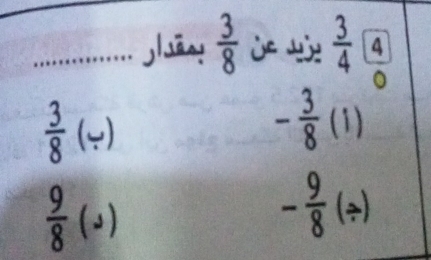 4 3/4 يزيد عن 3/8 بمقدار ..............
(أ) -3/8 (ب) 3/8
(ج) -9/8 (د) 9/8